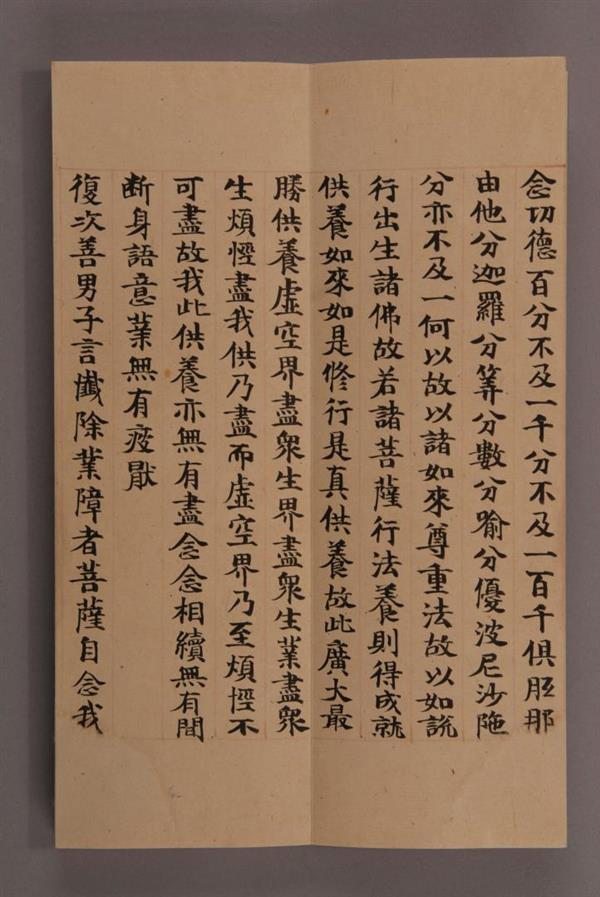 念功德百分不及一千分不及一百千俱胝那
由他分迦羅分筭分數分喻分優波尼沙陁
分亦不及一何以故以諸如來尊重法故以如説
行出生諸佛故若諸菩薩行法養則得成就
供養如來如是修行是真供養故此廣大最
勝供養虛空界盡衆生界盡衆生業盡衆
生煩惱盡我供乃盡而虛空界乃至煩惱不
可盡故我此供養亦無有盡念念相續無有間
断身語意業無有疲猒
復次善男子言懺除業障者菩薩自念我